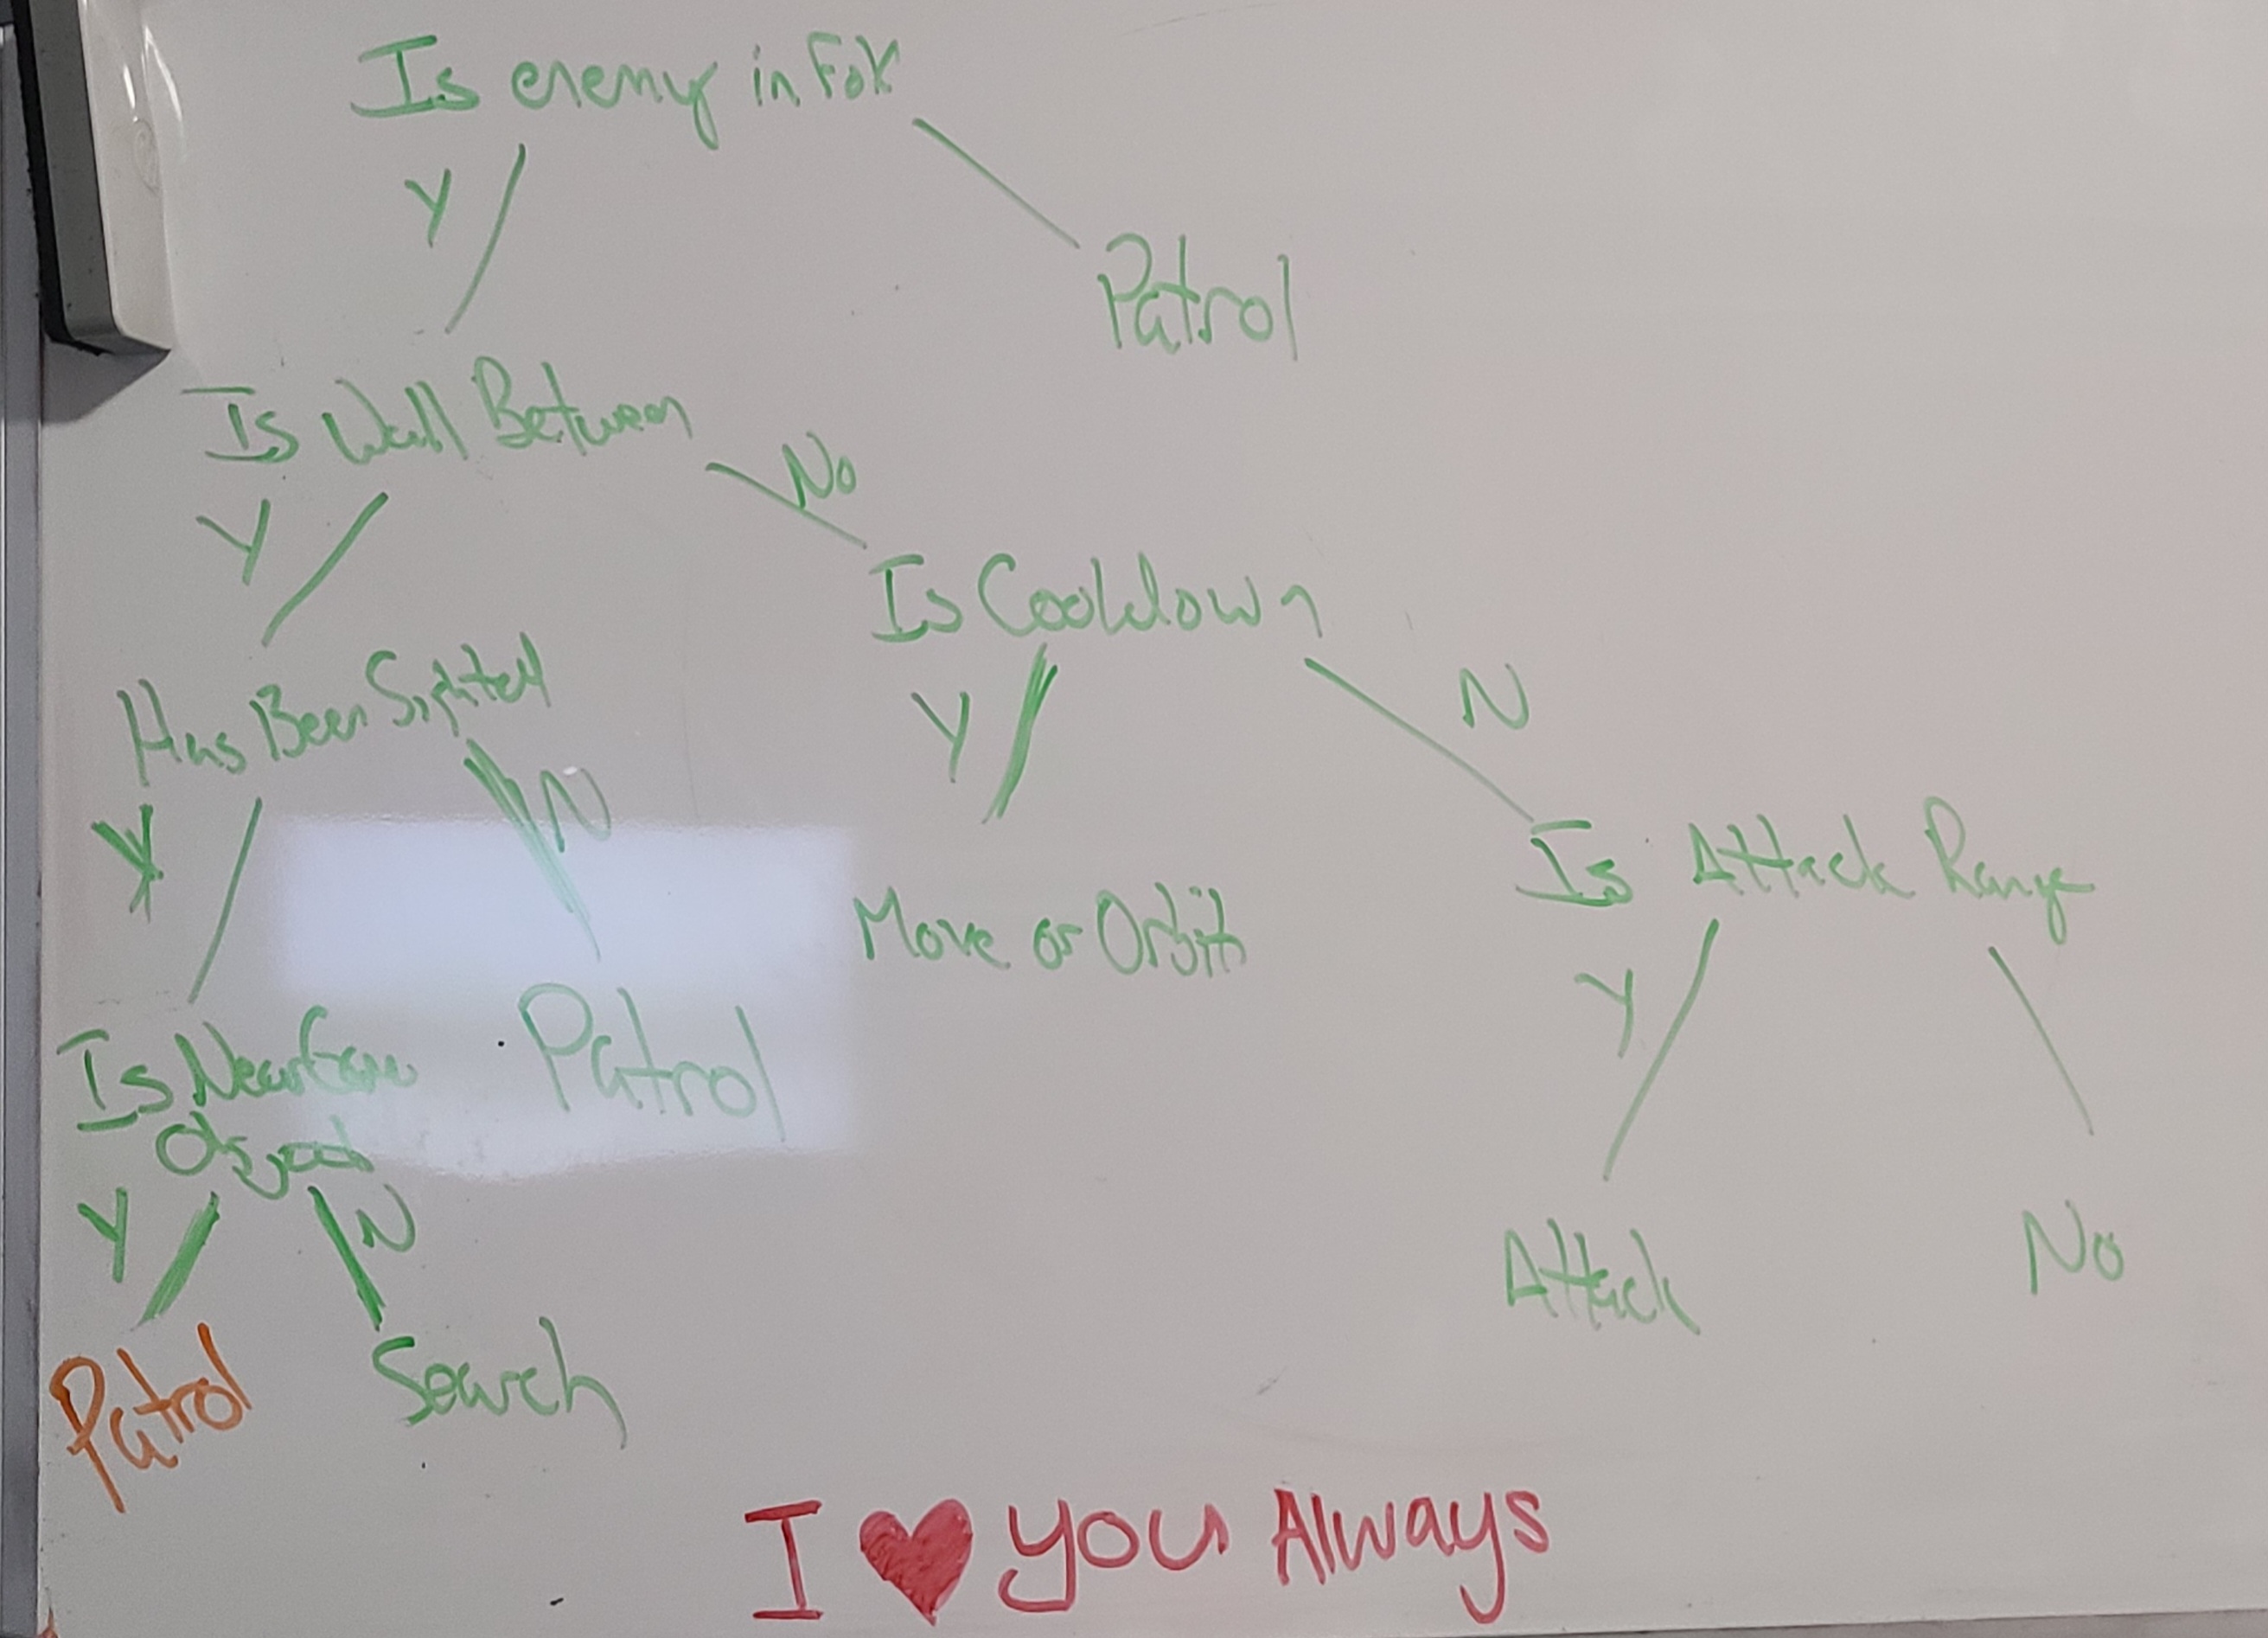 Is enemy in FoV
Y
Patrol
Is Wall Between
No
Y
Is Cooldown
Has Been Sighted
Y
N
Y
N
Is Attack Range
Move or Orbit
Y
Is Near
Patrol
Y
N
Attack
No
Patrol
Search
I ❤ you Always